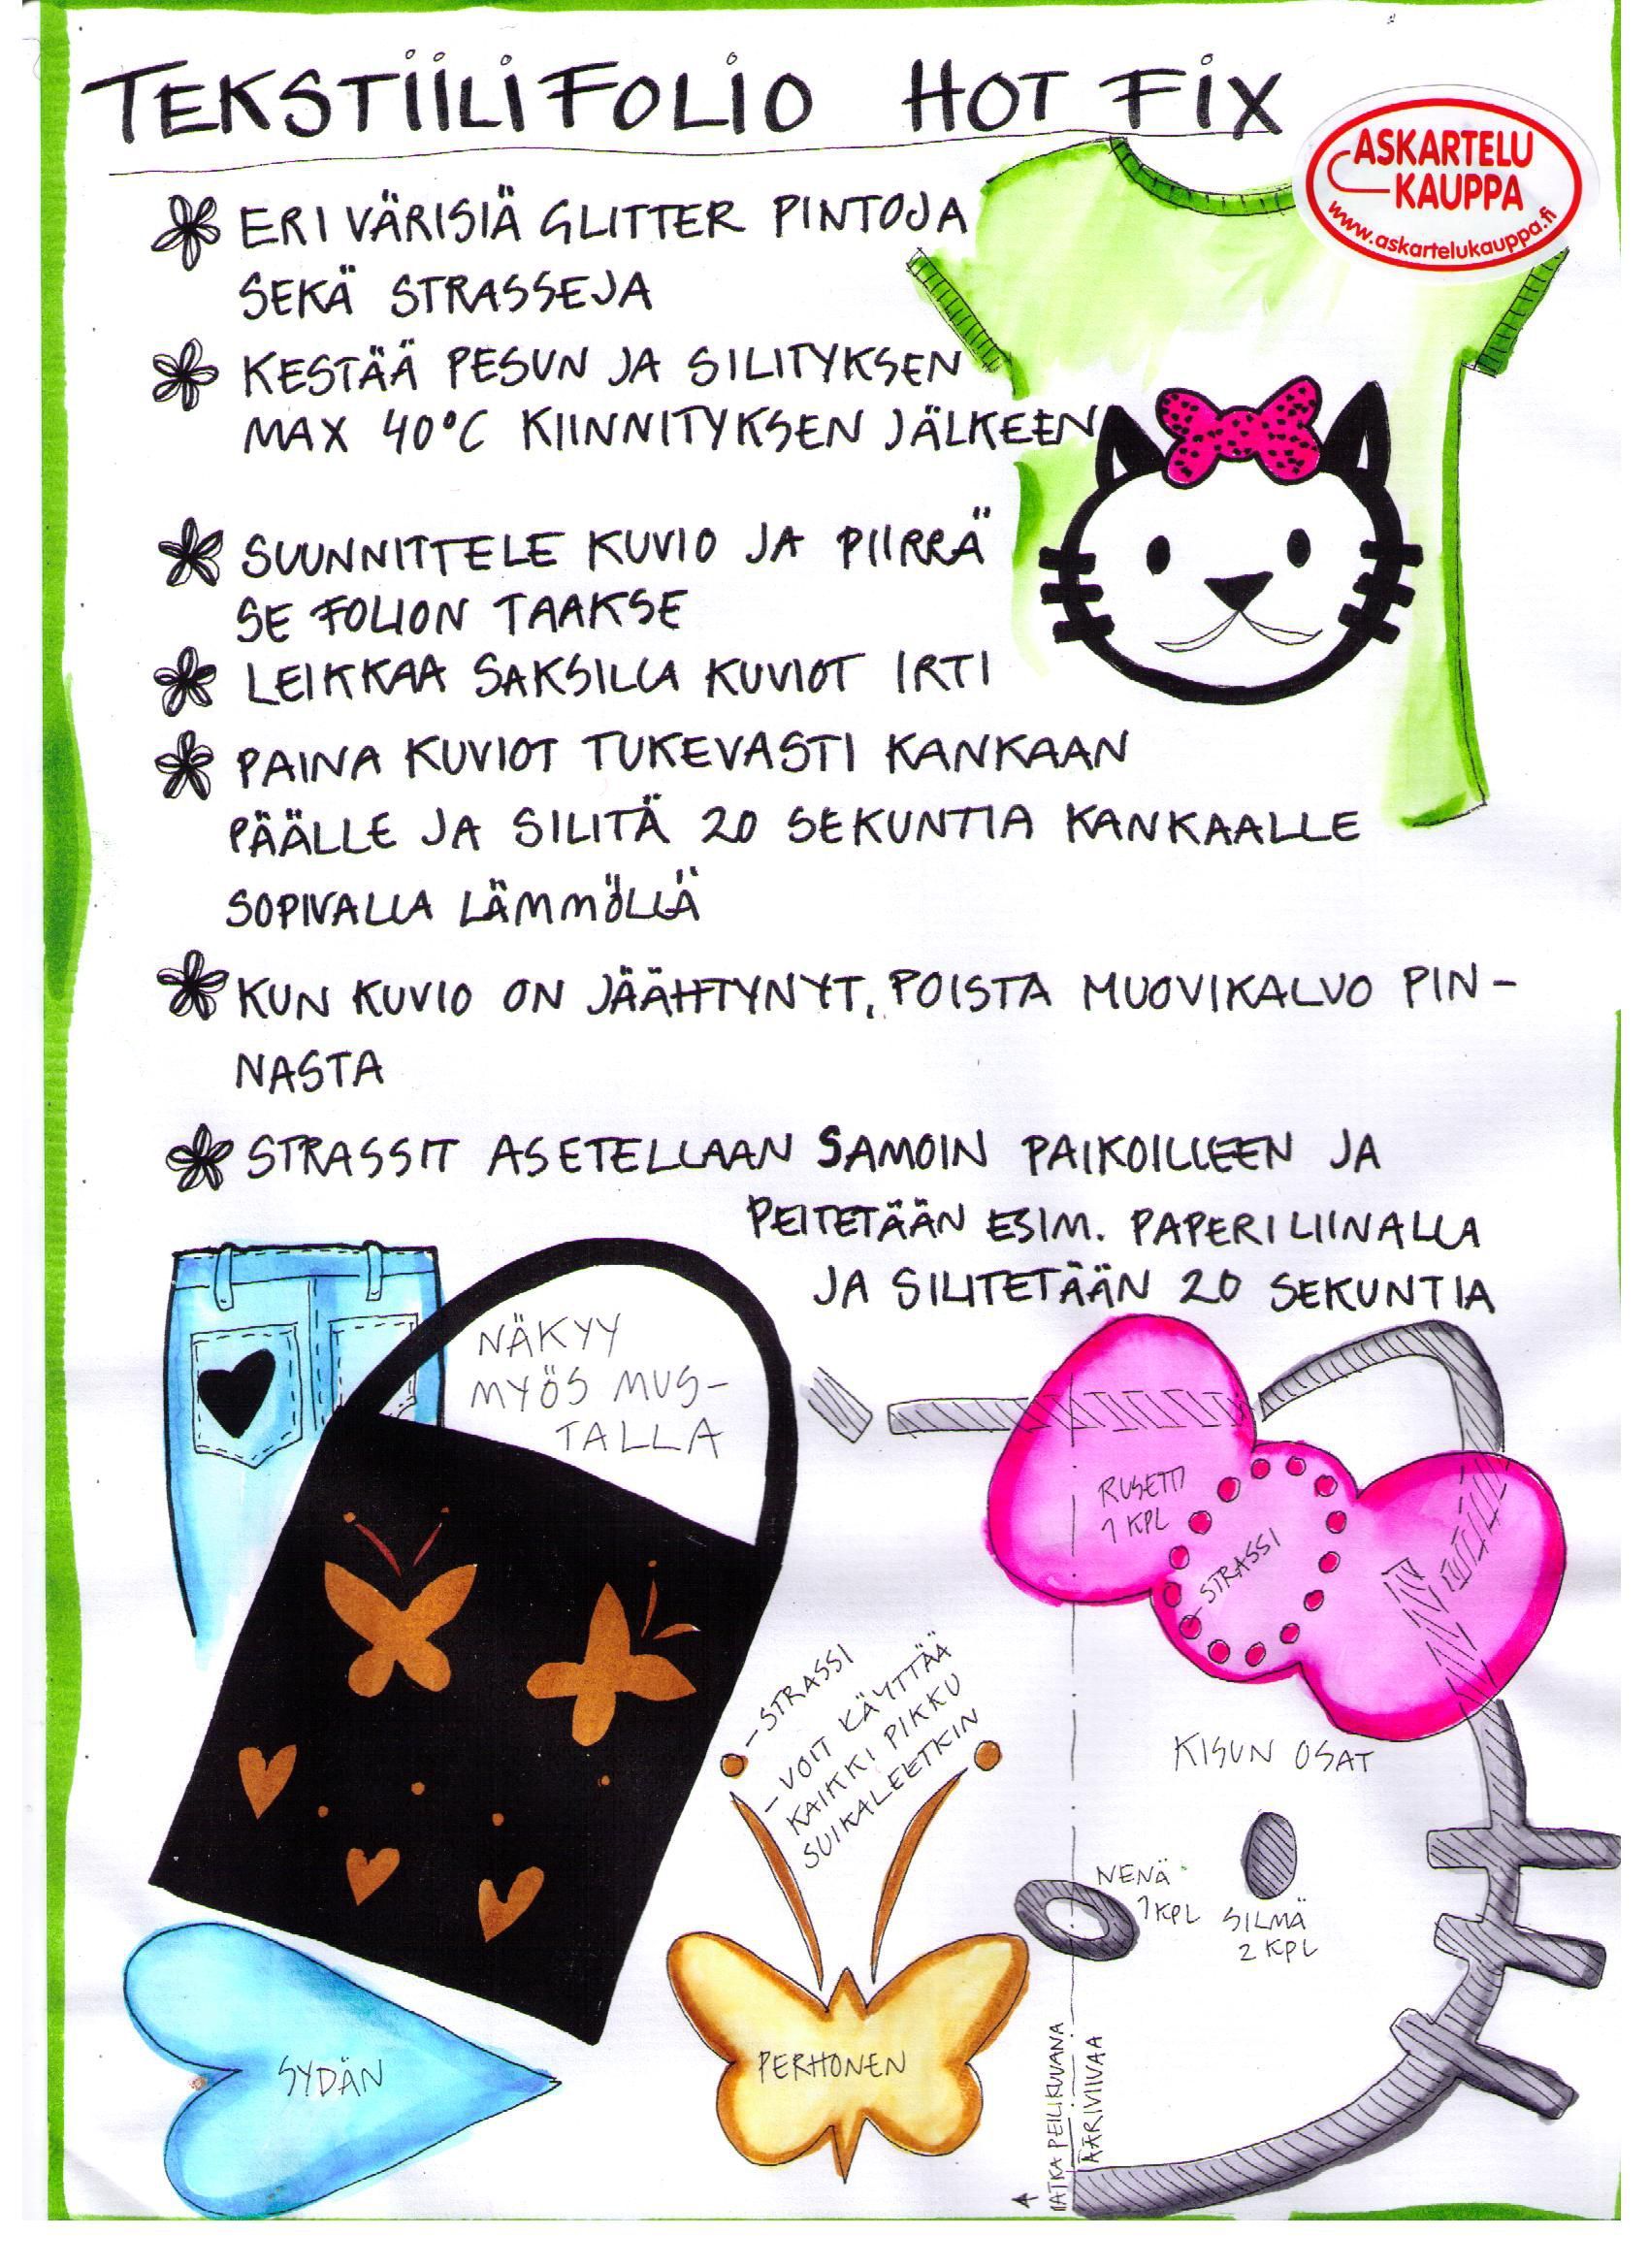 TEKSTIILIFOLIO HOT FIX
ASKARTELU
KAUPPA
www.askartelukauppa.fi
ERI VÄRISIÄ GLITTER PINTOJA
SEKÄ STRASSEJA
KESTÄÄ PESUN JA SILITYKSEN
MAX 40°C KIINNITYKSEN JÄLKEEN
SUUNNITTELE KUVIO JA PIIRRÄ
SE FOLION TAAKSE
LEIKKAA SAKSILLA KUVIOT IRTI
PAINA KUVIOT TUKEVASTI KANKAAN
PÄÄLLE JA SILITÄ 20 SEKUNTIA KANKAALLE
SOPIVALLA LÄMMÖLLÄ
KUN KUVIO ON JÄÄHTYNYT, POISTA MUOVIKALVO PIN-
NASTA
STRASSIT ASETELLAAN SAMOIN PAIKOILLEEN JA
PEITETÄÄN ESIM. PAPERILIINALLA
JA SILITETÄÄN 20 SEKUNTIA
NÄKYY
MYÖS MUS-
TALLA
RUSETTI
1 KPL
STRASSI
- STRASSI
- VOIT KÄYTTÄÄ
KAIKKI PIKKU
SUIKALEETKIN
KISUN OSAT
NENÄ
1 KPL
SILMÄ
2 KPL
SYDÄN
PERHONEN
JATKA PEILIKUVANA
ÄÄRIVIIVAA